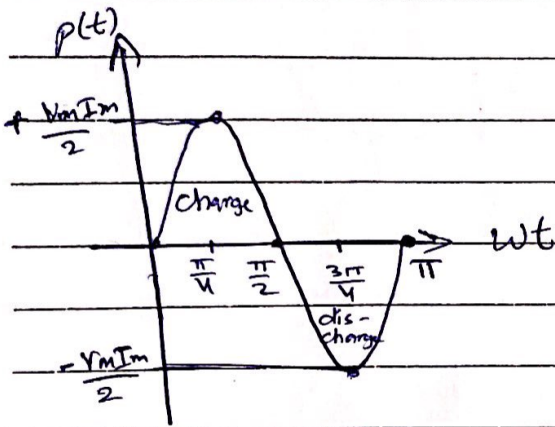 p(t)
+ VmIm
2
charge
π/4 π/2 3π/4 π ωt
dis-
charge
- VmIm
2